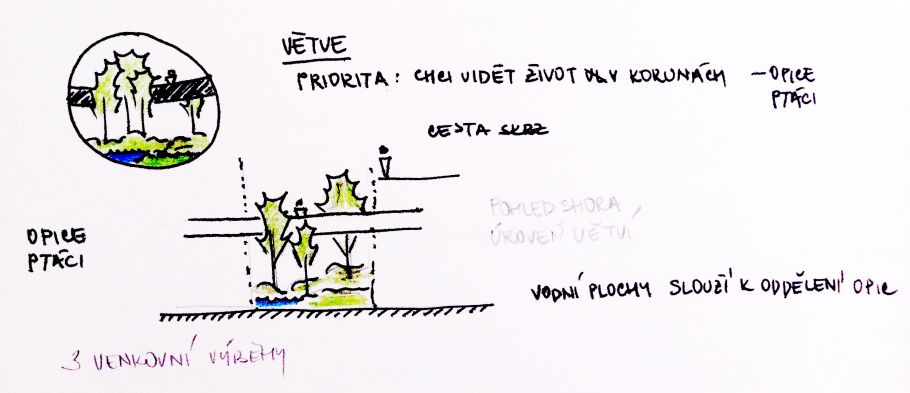 VĚTVE
PRIORITA: CHCI VIDĚT ŽIVOT V KORUNÁCH – OPICE
PTÁCI
CESTA SKRZ
POHLED SHORA
ÚROVEŇ VĚTVÍ
OPICE
PTÁCI
VODNÍ PLOCHY SLOUŽÍ K ODDĚLENÍ OPIC
3 VENKOVNÍ VÝBĚHY